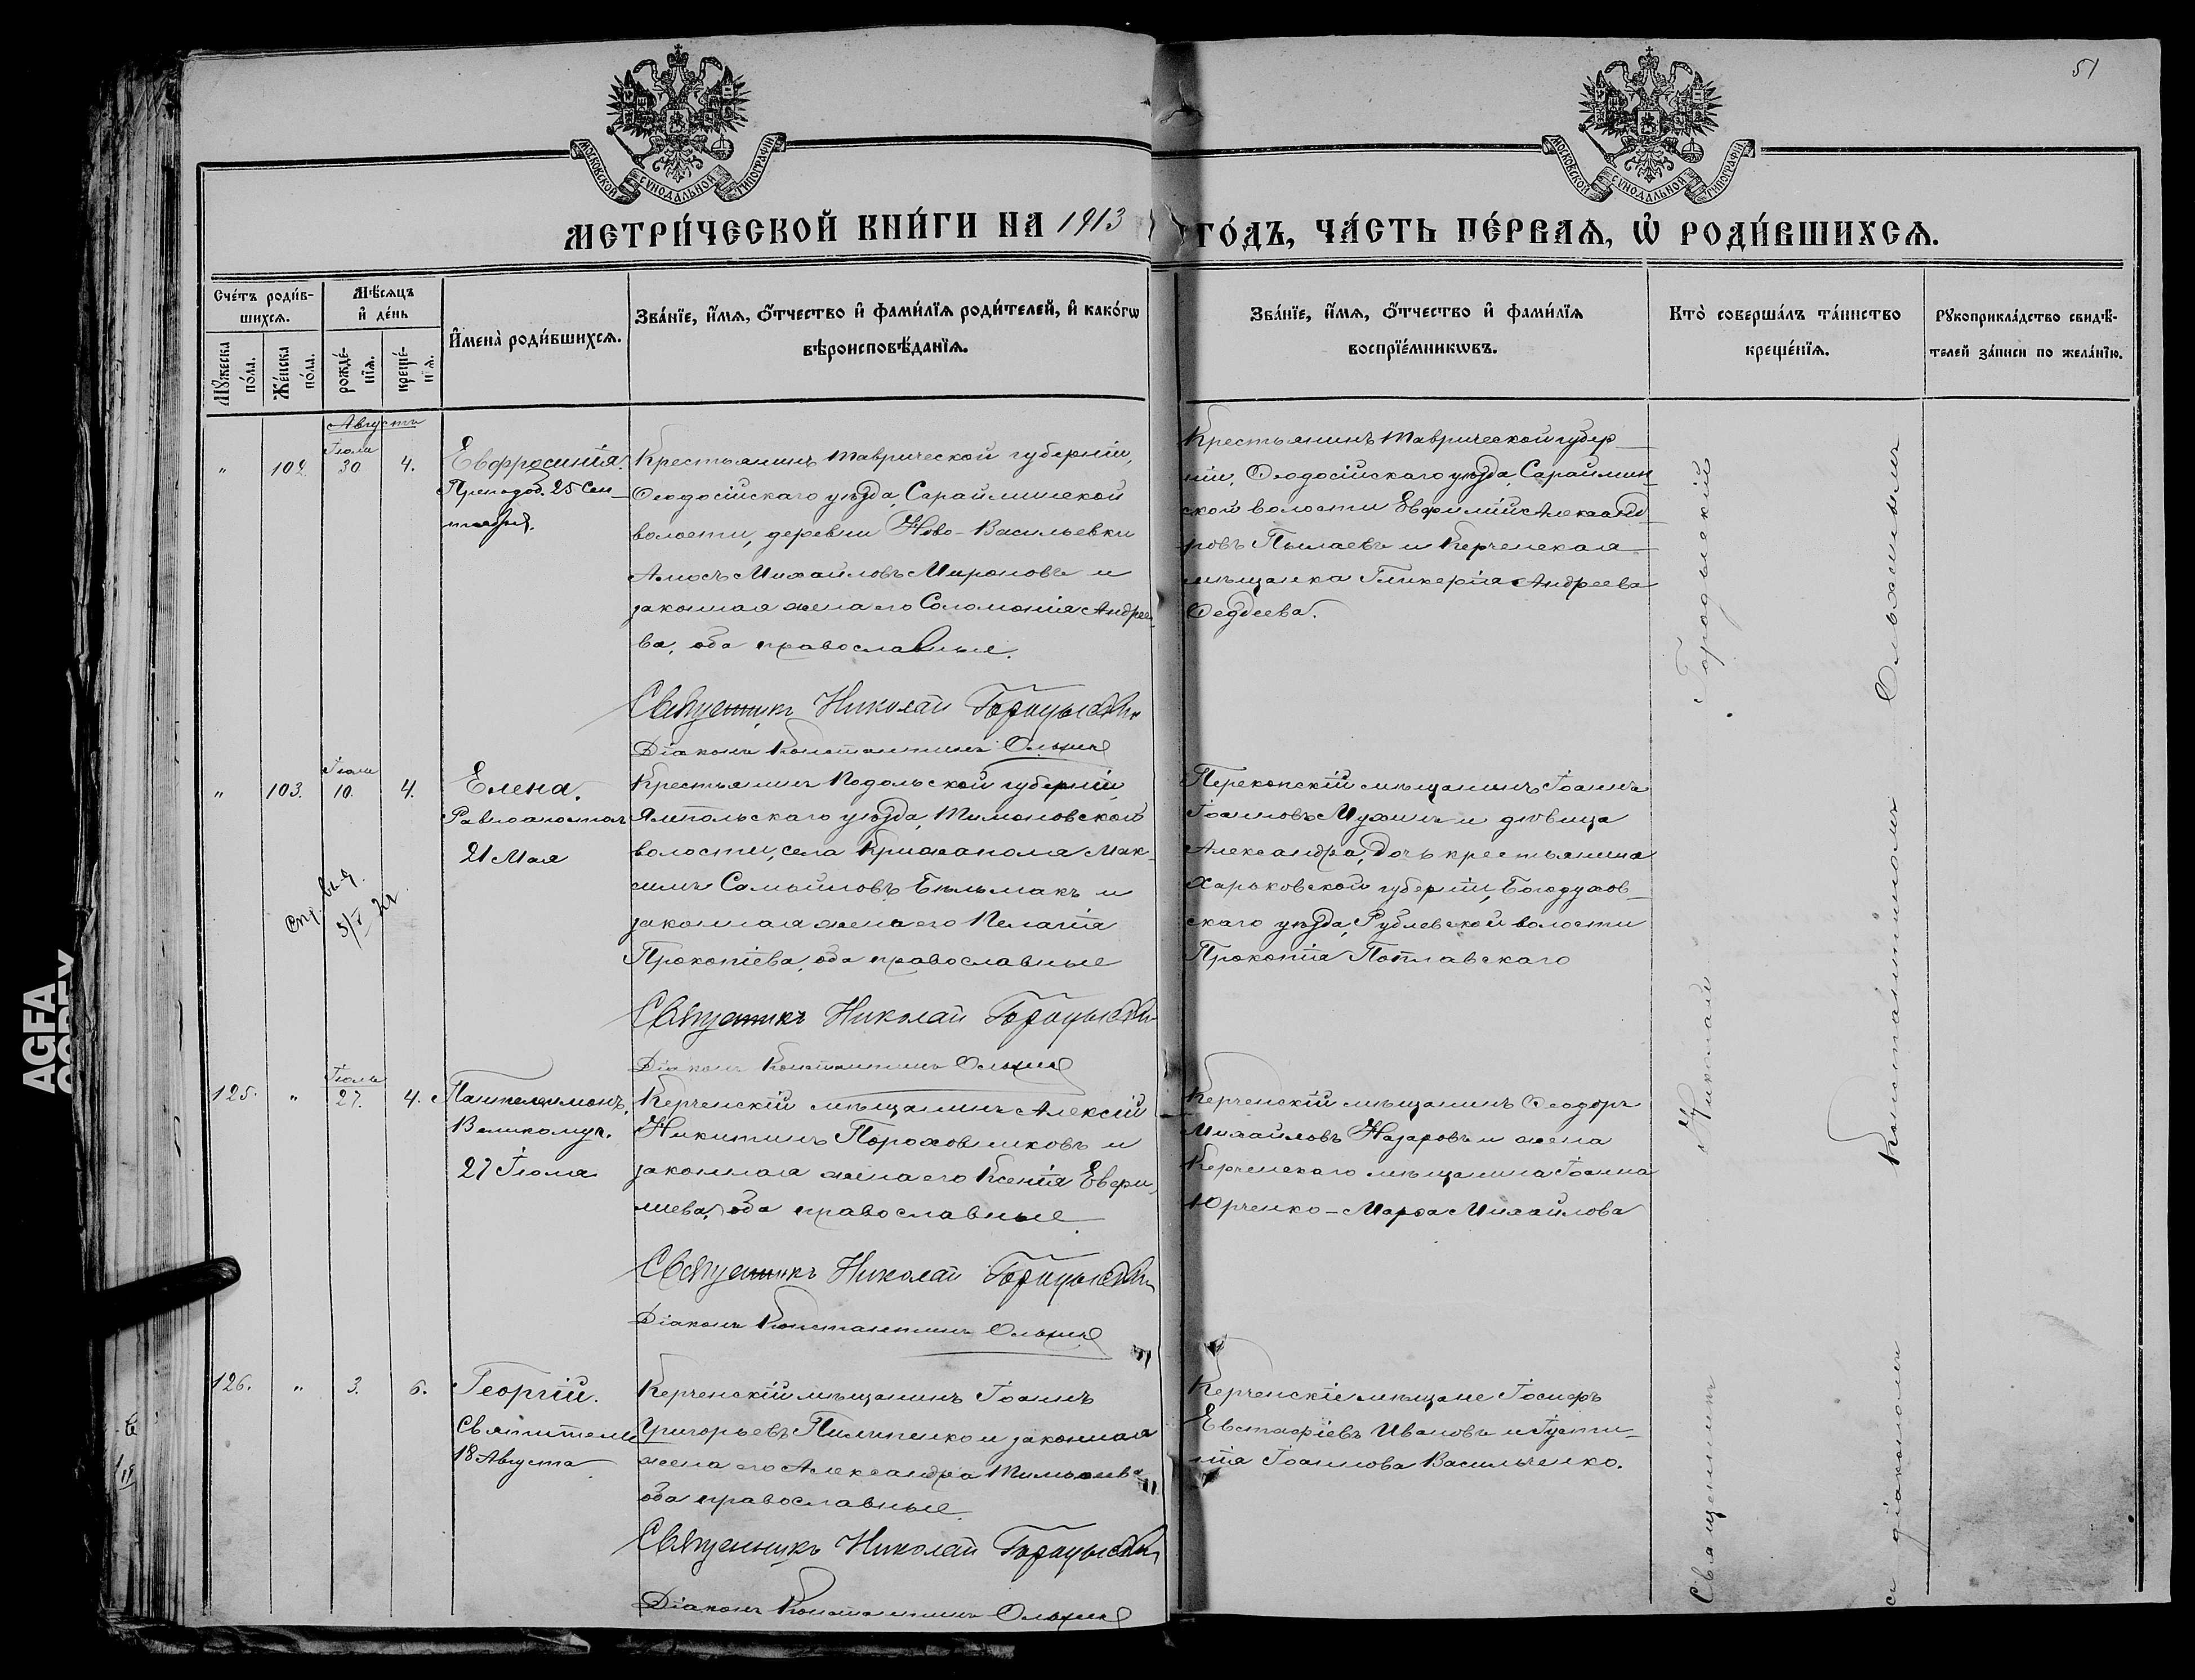 51
МОСКОВСКОЙ СѴНОДАЛЬНОЙ ТИПОГРАФІИ
МОСКОВСКОЙ СѴНОДАЛЬНОЙ ТИПОГРАФІИ
МЕТРИ́ЧЕСКОЙ КНИ́ГИ НА 1913 ГО́ДЪ, ЧА́СТЬ ПЕ́РВАѦ, Ѡ҆ РОДИ́ВШИХСѦ.
Сче́тъ роди́в-
шихсѧ.
Мꙋ́жеска
по́ла.
Же́нска
по́ла.
Мѣ́сѧцъ
и҆ де́нь
рожде́-
нїѧ.
креще́-
нїѧ.
И҆мена̀ роди́вшихсѧ.
Зва́нїе, и҆́мѧ, ѻ҆́тчество и҆ фами́лїѧ роди́телей, и҆ како́гѡ
вѣроисповѣ́данїѧ.
Зва́нїе, и҆́мѧ, ѻ҆́тчество и҆ фами́лїѧ
воспрїе́мникѡвъ.
Кто̀ соверша́лъ та́инство
креще́нїѧ.
Рꙋкоприкла́дство свидѣ́-
телей за́писи по жела́нїю.
Августъ
Іюля
" 102 30 4.
Евфросинія.
Преподоб. 25 Сен-
тября.
Крестьянинъ Таврической губерніи,
Ѳеодосійскаго уѣзда, Сарайминской
волости, деревни Ново-Васильевки
Амосъ Михайловъ Мироновъ и
законная жена его Соломонія Андрее-
ва, оба православные.
Священникъ Николай Городыскій
Діаконъ Константинъ
Крестьянинъ Таврической губер-
ніи, Ѳеодосійскаго уѣзда, Сараймин-
ской волости Евфимій Александ-
ровъ Пылаевъ и Керченская
мѣщанка Гликерія Андреева
Ѳедѣева.
Іюля
" 103. 10. 4.
Елена.
Равноапостол
21 Мая
5/V
Крестьянинъ Подольской губерніи,
Ямпольскаго уѣзда, Тимоновской
волости, села Крижаполя Мак-
симъ Самойловъ Бѣльмакъ и
законная жена его Пелагія
Прокопіева, оба православные
Священникъ Николай Городыскій
Діаконъ Константинъ
Перекопскій мѣщанинъ Іоаннъ
Іоанновъ Мухинъ и дѣвица
Александра, дочь крестьянина
Харьковской губерніи, Богодухов-
скаго уѣзда, Рублевской волости
Прокопія Поплавскаго
Іюль
125. " 27. 4.
Пантелеимонъ.
Великомуч.
27 Іюля
Керченскій мѣщанинъ Алексій
Никитинъ Пороховниковъ и
законная жена его Ксенія Евфи-
міева, оба православные
Священникъ Николай Городыскій
Діаконъ Константинъ
Керченскій мѣщанинъ Ѳеодоръ
Михайловъ Назаровъ и жена
Керченскаго мѣщанина Іоанна
Юрченко - Марѳа Михайлова
126. " 3. 6.
Георгій.
Святителя
18 Августа
Керченскій мѣщанинъ Іоаннъ
Григорьевъ Пилипенко и законная
жена его Александра Тимоѳеева
оба православные.
Священникъ Николай Городыскій
Діаконъ Константинъ
Керченскіе мѣщане Іосифъ
Евстафіевъ Ивановъ и Іусти-
нія Іоаннова Васильченко.
Священникъ Николай Городыскій
съ діакономъ Константиномъ
AGFA